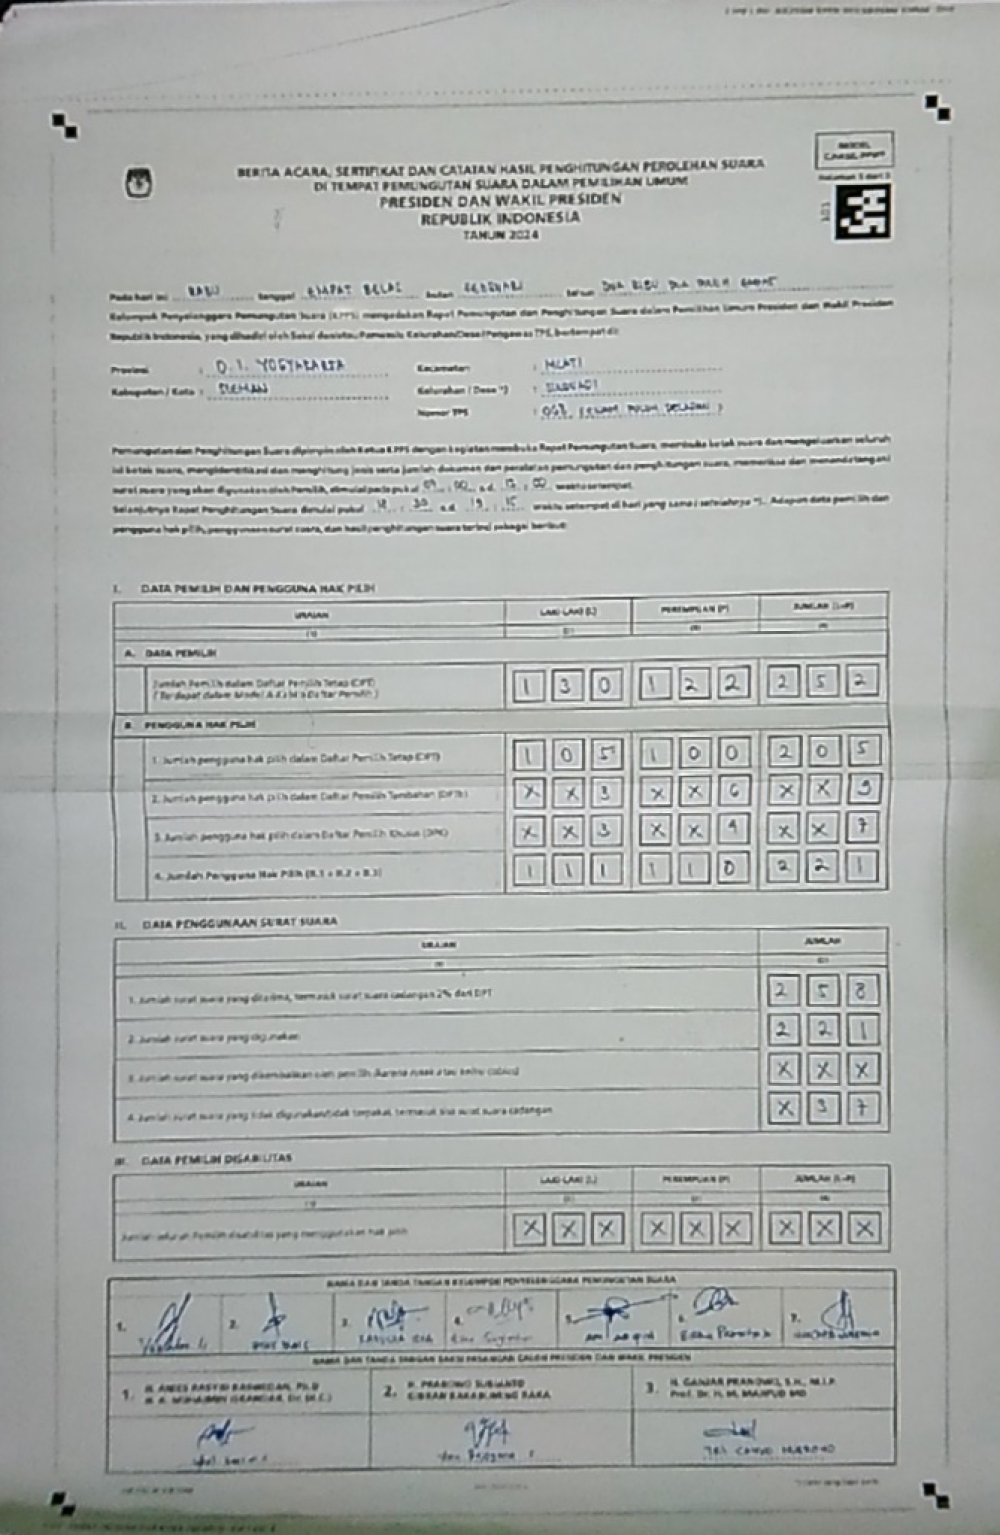 BERITA ACARA, SERTIFIKAT DAN CATATAN HASIL PENGHITUNGAN PEROLEHAN SUARA
DI TEMPAT PEMUNGUTAN SUARA DALAM PEMILIHAN UMUM
PRESIDEN DAN WAKIL PRESIDEN
REPUBLIK INDONESIA
TAHUN 2024
Pada hari ini RABU tanggal EMPAT BELAS bulan FEBRUARI tahun DUA RIBU DUA PULUH EMPAT
Kelompok Penyelenggara Pemungutan Suara (KPPS) mengadakan Rapat Pemungutan dan Penghitungan Suara dalam Pemilihan Umum Presiden dan Wakil Presiden
Republik Indonesia, yang dihadiri oleh Saksi dan/atau Panwaslu Kelurahan/Desa/Pengawas TPS, bertempat di:
Provinsi : D.I. YOGYAKARTA
Kecamatan : MLATI
Kabupaten / Kota : SLEMAN
Kelurahan / Desa *) : SINDUADI
Nomor TPS :
Pemungutan dan Penghitungan Suara dipimpin oleh Ketua KPPS dengan kegiatan membuka Rapat Pemungutan Suara, membuka kotak suara dan mengeluarkan seluruh
isi kotak suara, mengidentifikasi dan menghitung jenis serta jumlah dokumen dan peralatan pemungutan dan penghitungan suara, memeriksa dan menandatangani
surat suara yang akan digunakan oleh Pemilih, dimulai pada pukul : 00 s.d. 13 : 00 waktu setempat.
Selanjutnya Rapat Penghitungan Suara dimulai pukul : 30 s.d. 19 : 15 waktu setempat di hari yang sama / setelahnya *). Adapun data pemilih dan
pengguna hak pilih, penggunaan surat suara, dan hasil penghitungan suara terinci sebagai berikut:
I. DATA PEMILIH DAN PENGGUNA HAK PILIH
URAIAN LAKI-LAKI (L) PEREMPUAN (P) JUMLAH (L+P)
A. DATA PEMILIH
Jumlah Pemilih dalam Daftar Pemilih Tetap (DPT) 1 3 0 1 2 2 2 5 2
B. PENGGUNA HAK PILIH
1. Jumlah pengguna hak pilih dalam Daftar Pemilih Tetap (DPT) 1 0 5 1 0 0 2 0 5
2. Jumlah pengguna hak pilih dalam Daftar Pemilih Tambahan (DPTb) X X 3 X X 6 X X 9
3. Jumlah pengguna hak pilih dalam Daftar Pemilih Khusus (DPK) X X 3 X X 4 X X 7
4. Jumlah Pengguna Hak Pilih (B.1 + B.2 + B.3) 1 1 1 1 1 0 2 2 1
II. DATA PENGGUNAAN SURAT SUARA
URAIAN JUMLAH
1. Jumlah surat suara yang diterima, termasuk surat suara cadangan 2% dari DPT 2 5 8
2. Jumlah surat suara yang digunakan 2 2 1
3. Jumlah surat suara yang dikembalikan oleh pemilih karena rusak atau keliru coblos X X X
4. Jumlah surat suara yang tidak digunakan/tidak terpakai, termasuk sisa surat suara cadangan X 3 7
III. DATA PEMILIH DISABILITAS
URAIAN LAKI-LAKI (L) PEREMPUAN (P) JUMLAH (L+P)
Jumlah seluruh Pemilih disabilitas yang menggunakan hak pilih X X X X X X X X X
NAMA DAN TANDA TANGAN KELOMPOK PENYELENGGARA PEMUNGUTAN SUARA
1. 2. 3. 4. 5. 6. 7.
NAMA DAN TANDA TANGAN SAKSI PASANGAN CALON PRESIDEN DAN WAKIL PRESIDEN
1. H. ANIES RASYID BASWEDAN, Ph.D
2. H. PRABOWO SUBIANTO
GIBRAN RAKABUMING RAKA
3. H. GANJAR PRANOWO, S.H., M.I.P.
Prof. Dr. H. M. MAHFUD MD